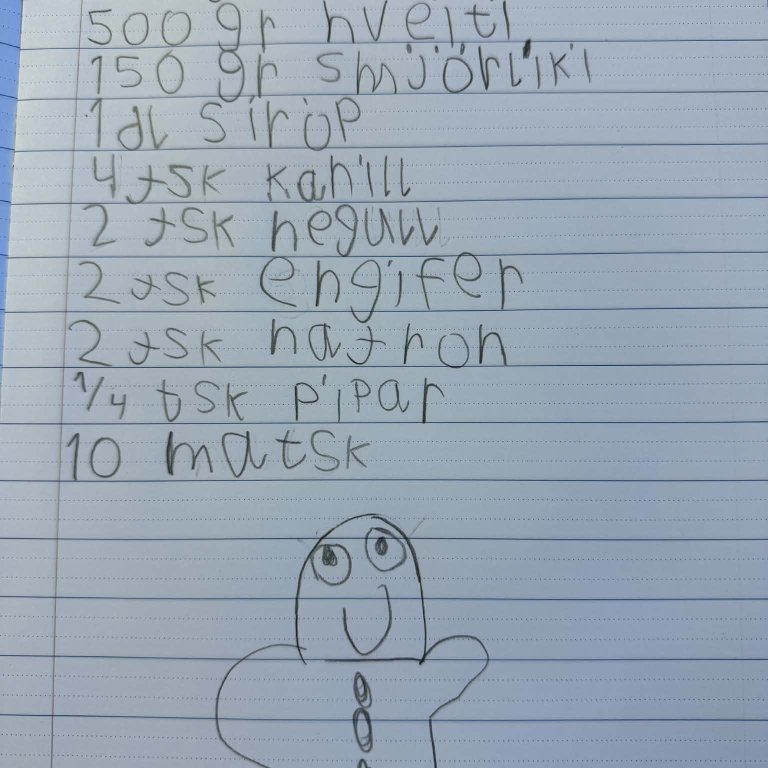 500 gr hveiti
150 gr smjörlíki
1 dl síróp
4 tsk kanill
2 tsk negull
2 tsk engifer
2 tsk natron
1/4 tsk pipar
10 matsk